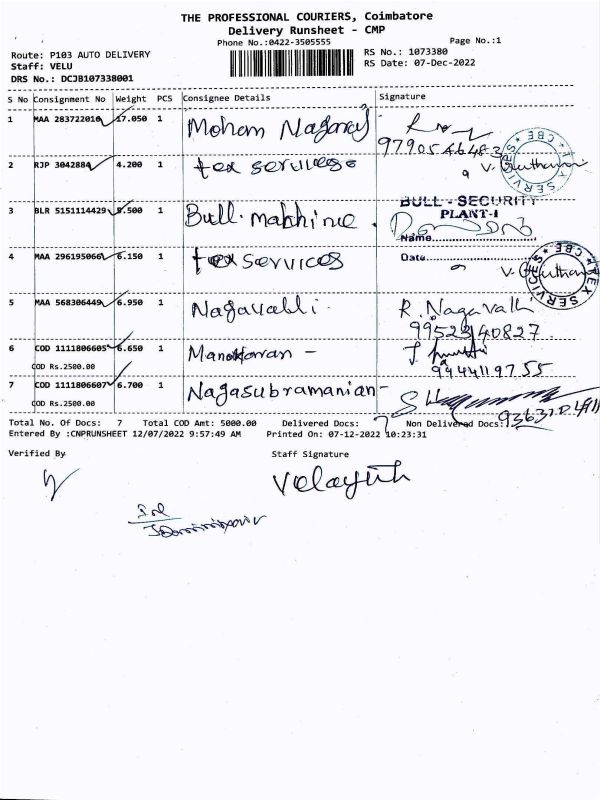 THE PROFESSIONAL COURIERS, Coimbatore
Delivery Runsheet - CMP
Phone No.:0422-3505555
Page No.:1
Route: P103 AUTO DELIVERY
Staff: VELU
DRS No.: DCJB107338001
RS No.: 1073380
RS Date: 07-Dec-2022
S No Consignment No Weight PCS Consignee Details Signature
1 MAA 283722010 17.050 1 Mohan Nagaraj
9790546483
2 RJP 3042884 4.200 1 tex services
V.
TEX SERVICES * CBE *
3 BLR 5151114429 1 Bull. machine.
BULL - SECURITY
PLANT-I
Name
4 MAA 296195066 6.150 1 tex services
Date
V.
TEX SERVICES * CBE *
5 MAA 568306449 6.950 1 Nagavalli
R. Nagavalli
9952340827
6 COD 1111806605 6.650 1 Manoharan -
COD Rs.2500.00
9444119755
7 COD 1111806607 6.700 1 Nagasubramanian -
COD Rs.2500.00
Total No. Of Docs: 7 Total COD Amt: 5000.00 Delivered Docs: 7 Non Delivered Docs:
Entered By :CNPRUNSHEET 12/07/2022 9:57:49 AM Printed On: 07-12-2022 10:23:31
Verified By
Staff Signature
Velayuth